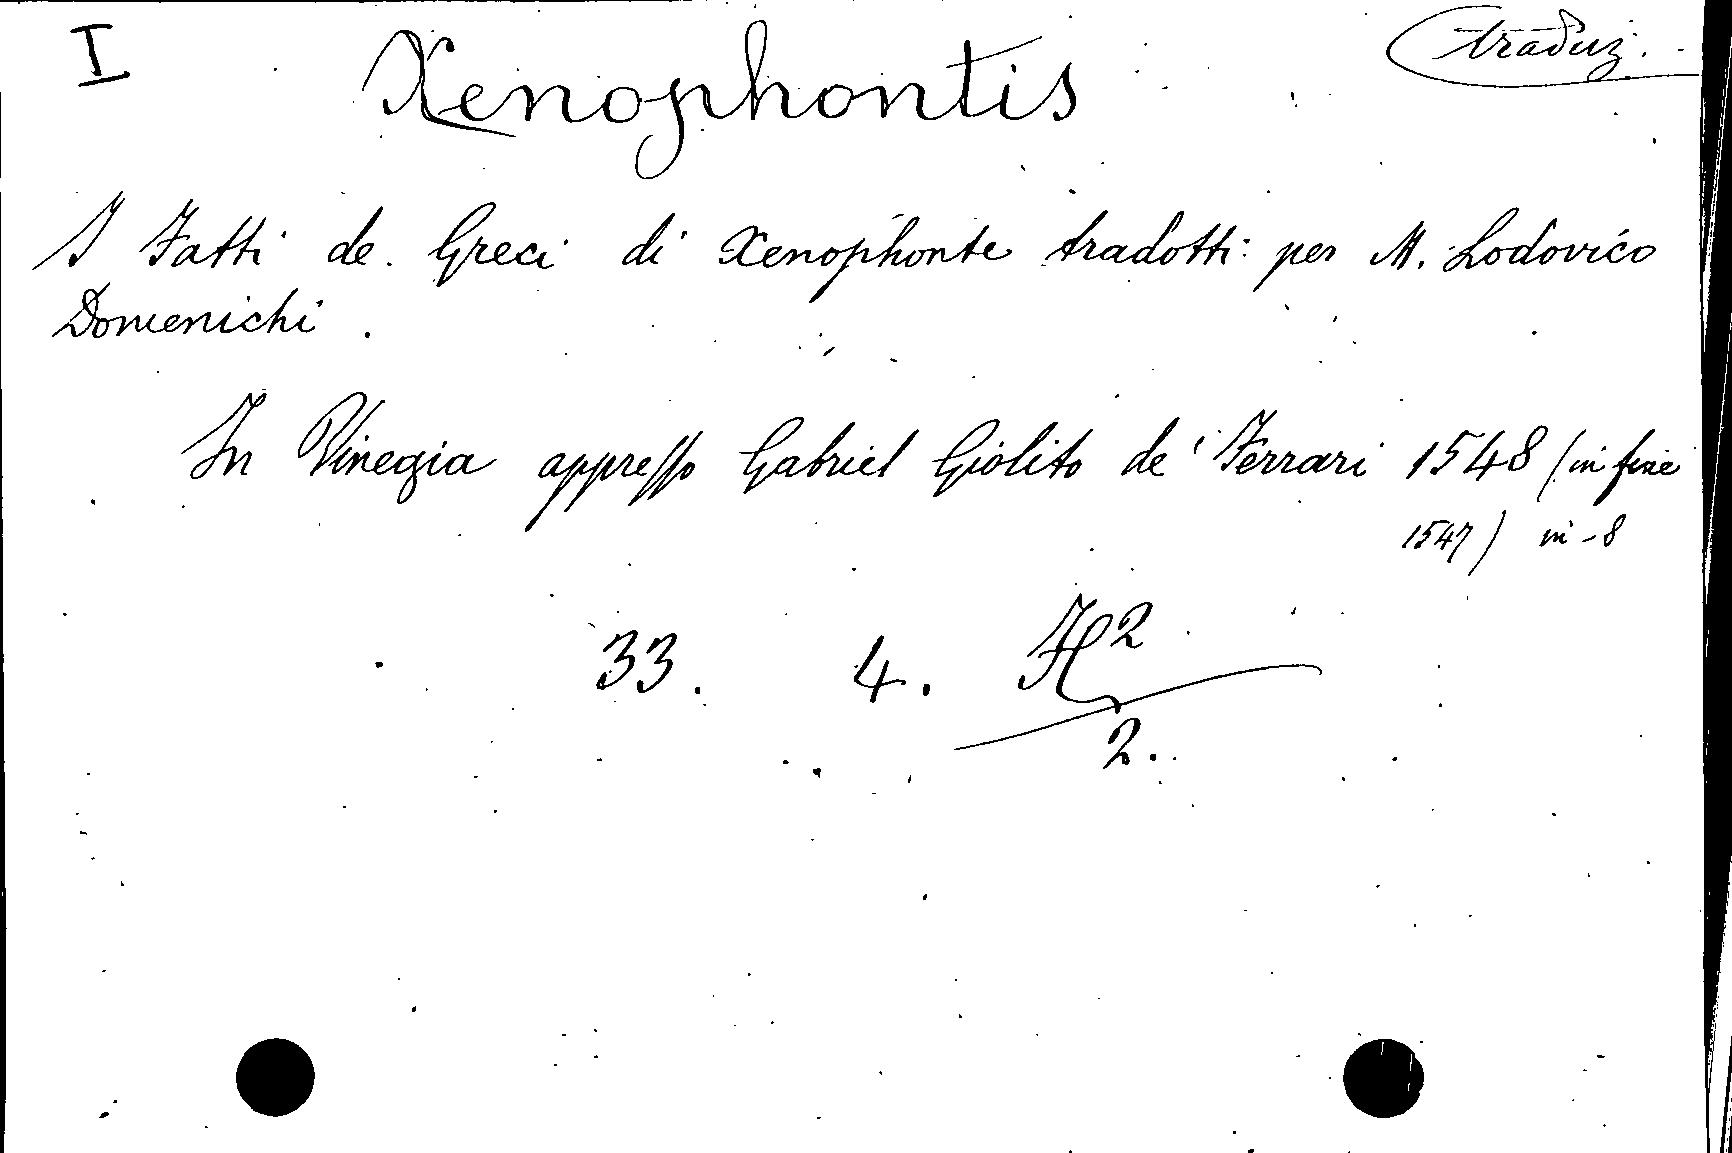 I Xenophontis traduz.
I Fatti de Greci di Xenophonte tradotti per M. Lodovico
Domenichi.
In Vinegia appresso Gabriel Giolito de' Ferrari 1548 (in fine
1547) in-8
33. 4. H²
2.